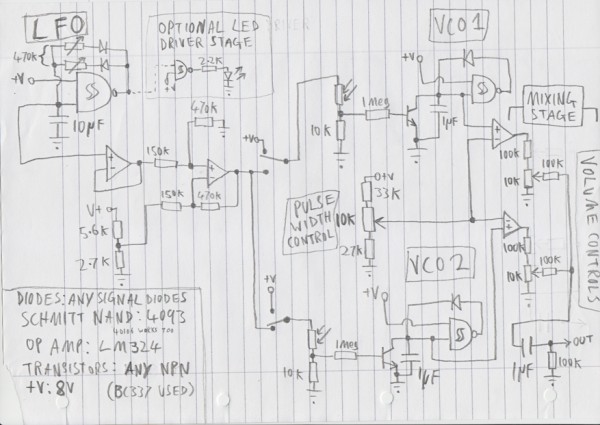 LFO
470K
+V
10µF
OPTIONAL LED
DRIVER STAGE
+V
2.2K
150K
470K
150K
470K
V+
5.6K
2.7K
+V
+V
10K
1 MEG
VCO1
+V
1µF
MIXING
STAGE
100K
10K
100K
VOLUME CONTROLS
PULSE
WIDTH
CONTROL
+V
33K
10K
27K
VCO 2
+V
10K
1 MEG
1µF
100K
10K
100K
1µF
OUT
100K
DIODES: ANY SIGNAL DIODES
SCHMITT NAND: 4093
40106 WORKS TOO
OP AMP: LM324
TRANSISTORS: ANY NPN
+V: 8V (BC337 USED)